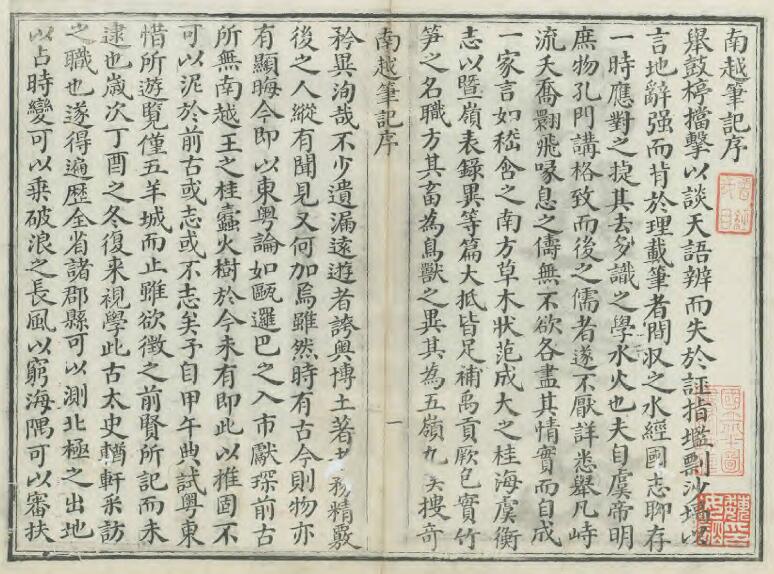 南越筆記序
舉鼓椁擋擊以談天語辨而失於誣指壏剽沙壇以
言地辭强而背於理載筆者間収之水經國志聊存
一時應對之㨗其去多識之學水火也夫自虞帝明
庶物孔門講格致而後之儒者遂不厭詳悉舉凡峙
流夭喬翾飛喙息之儔無不欲各盡其情實而自成
一家言如嵇含之南方草木狀范成大之桂海虞衡
志以暨嶺表錄異等篇大抵皆足補禹貢厥包實竹
笋之名職方其畜為鳥獸之異其為五嶺九 摟奇
南越筆記序
一
矜異洵哉不少遺漏遠遊者誇奥博土著者務精覈
後之人縱有聞見又何加焉雖然時有古今則物亦
有顯晦今即以東粤論如甌邏巴之入市獻琛前古
所無南越王之桂蠧火樹於今未有即此以推固不
可以泥於前古或志或不志矣予自甲午典試粤東
惜所遊覽僅五羊城而止雖欲徵之前賢所記而未
逮也歲次丁酉之冬復來視學此古太史輶軒采訪
之職也遂得遍歷全省諸郡縣可以測北極之出地
以占時變可以乘破浪之長風以窮海隅可以審扶